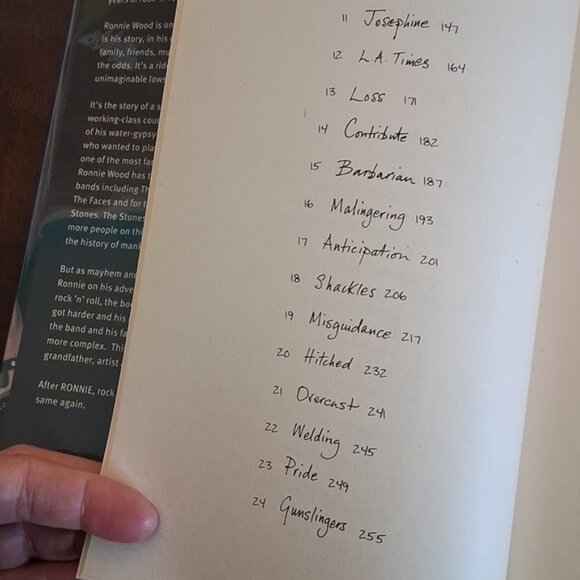 Ronnie Wood is on
is his story, in his
family, friends, mu
the odds. It's a rid
unimaginable lows
It's the story of a s
working-class cou
of his water-gypsy
who wanted to pla
one of the most fa
Ronnie Wood has t
bands including Th
The Faces and for t
Stones. The Stone
more people on thi
the history of mank
But as mayhem and
Ronnie on his adve
rock 'n' roll, the bo
got harder and his
the band and his fa
more complex. Thi
grandfather, artist
After RONNIE, rock
same again.
11 Josephine 147
12 L.A. Times 164
13 Loss 171
14 Contribute 182
15 Barbarian 187
16 Malingering 193
17 Anticipation 201
18 Shackles 206
19 Misguidance 217
20 Hitched 232
21 Overcast 241
22 Welding 245
23 Pride 249
24 Gunslingers 255